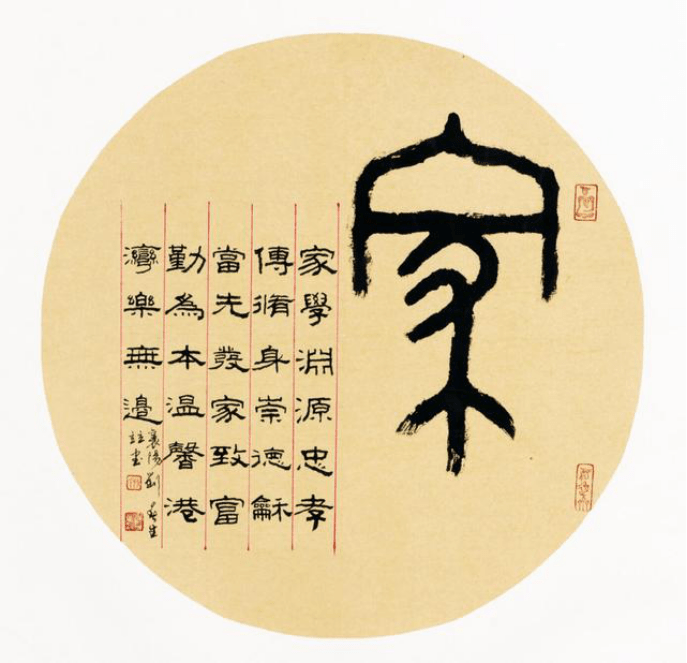 家
家學淵源忠孝
傳脩身崇德龢
當先發家致富
勤為本溫馨港
灣樂無邊
襄陽劉
書